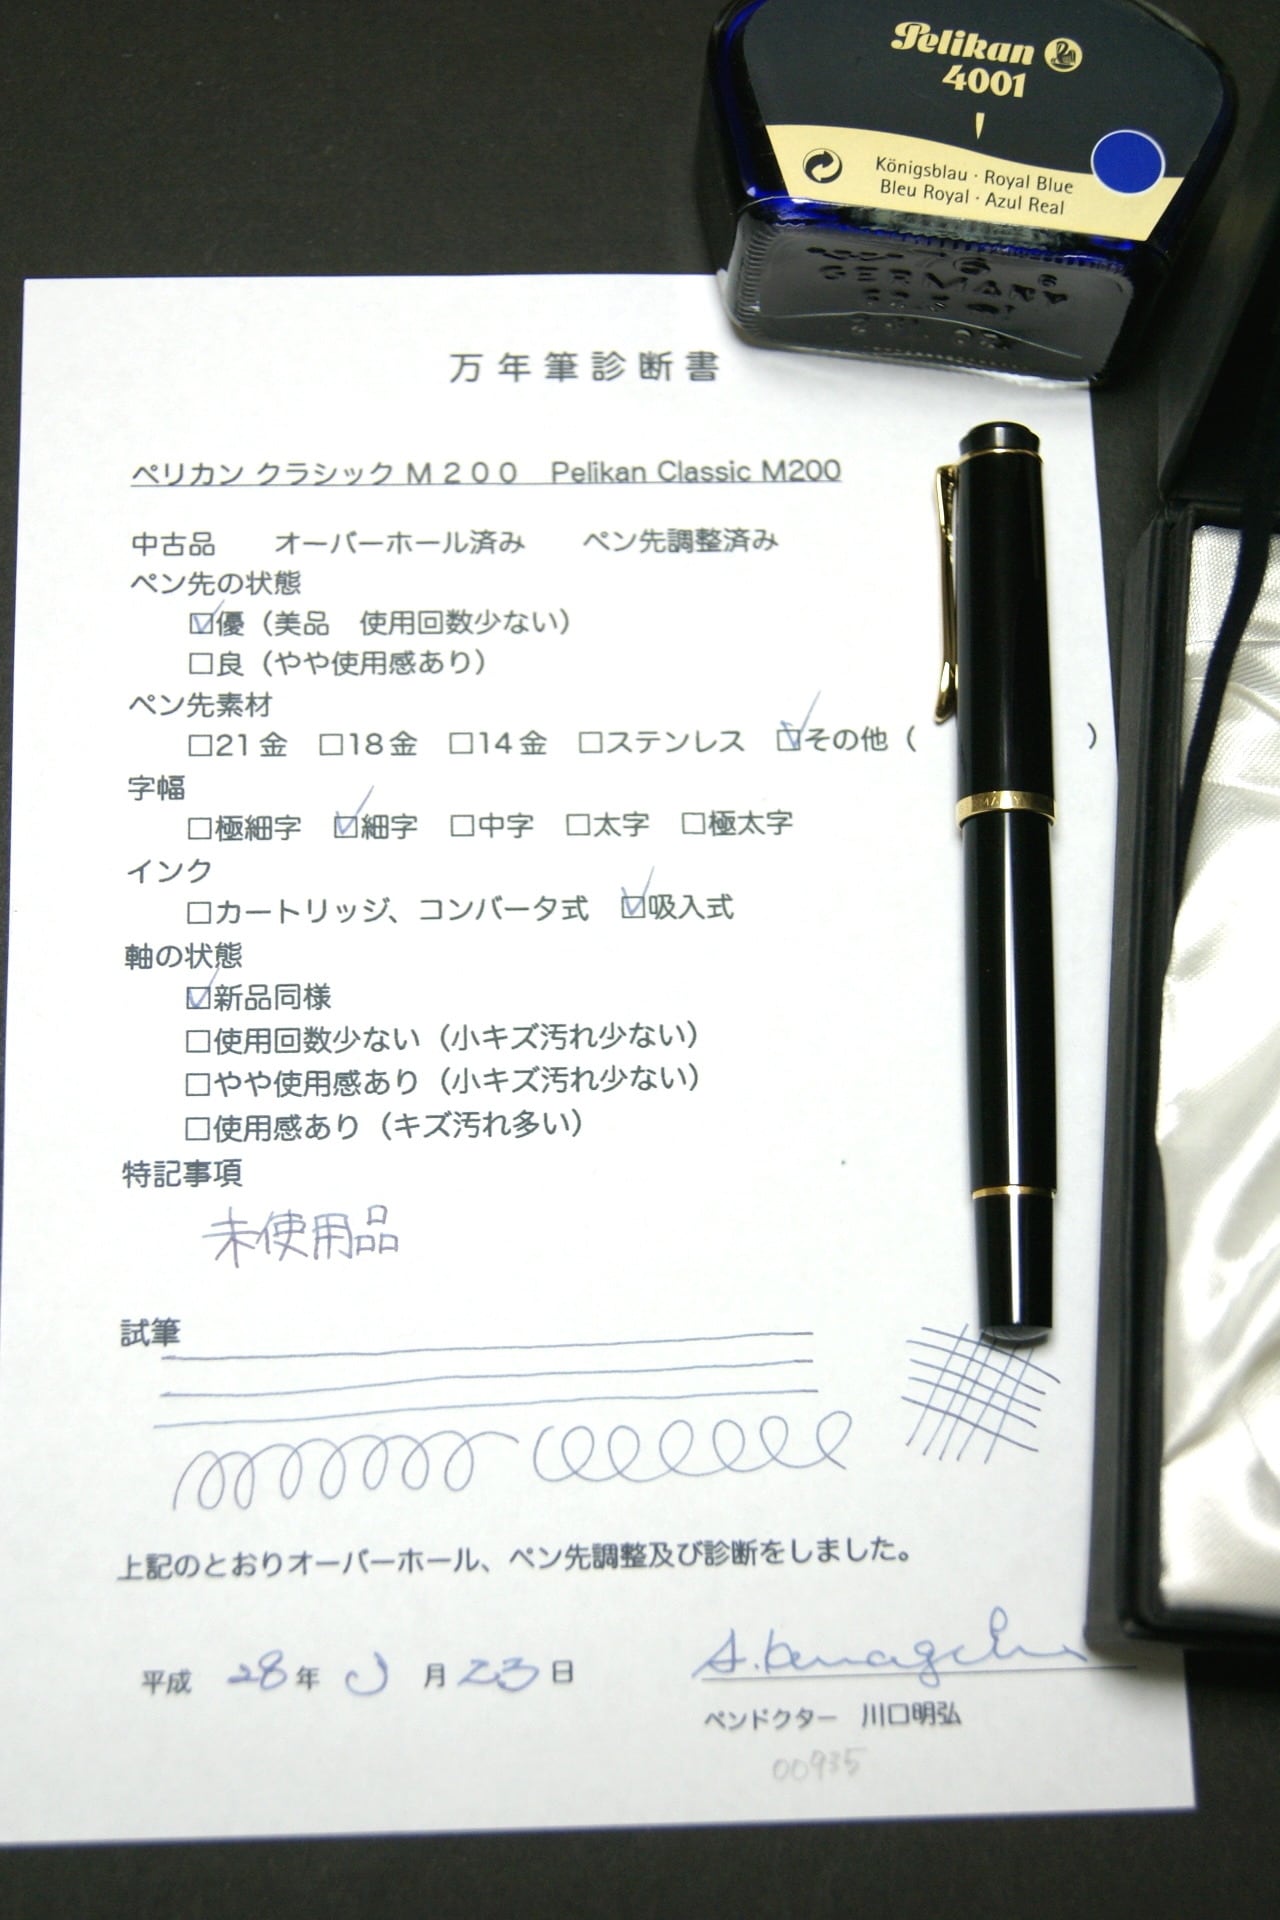 Pelikan
4001
Königsblau · Royal Blue
Bleu Royal · Azul Real
GERMANY
万年筆診断書
ペリカン クラシック M200 Pelikan Classic M200
中古品 オーバーホール済み ペン先調整済み
ペン先の状態
☑優（美品 使用回数少ない）
□良（やや使用感あり）
ペン先素材
□21金 □18金 □14金 □ステンレス ☑その他（ ）
字幅
□極細字 ☑細字 □中字 □太字 □極太字
インク
□カートリッジ、コンバータ式 ☑吸入式
軸の状態
☑新品同様
□使用回数少ない（小キズ汚れ少ない）
□やや使用感あり（小キズ汚れ少ない）
□使用感あり（キズ汚れ多い）
特記事項
未使用品
試筆
上記のとおりオーバーホール、ペン先調整及び診断をしました。
平成 28年 月 23日
ペンドクター 川口明弘
00935